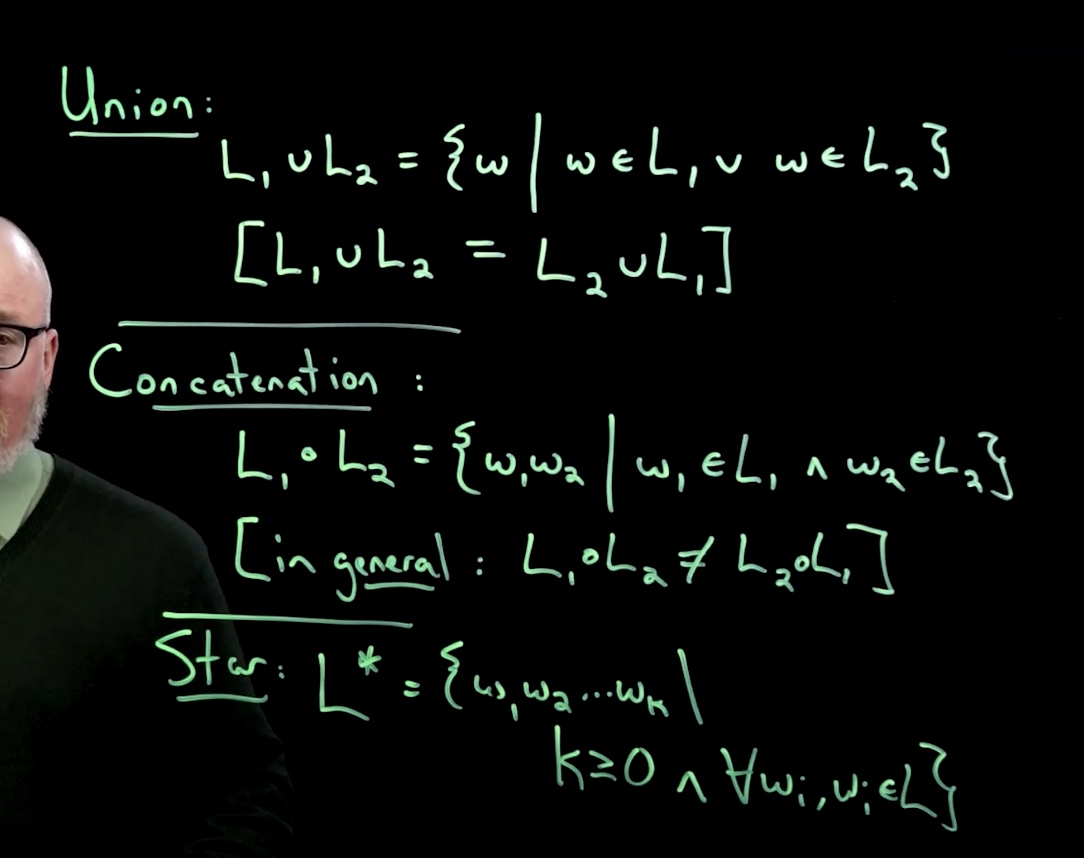 Union:
L₁ ∪ L₂ = {w | w ∈ L₁ ∨ w ∈ L₂}
[L₁ ∪ L₂ = L₂ ∪ L₁]
Concatenation :
L₁ ∘ L₂ = {w₁w₂ | w₁ ∈ L₁ ∧ w₂ ∈ L₂}
[in general : L₁∘L₂ ≠ L₂∘L₁]
Star: L* = {w₁w₂...wₖ |
k ≥ 0 ∧ ∀wᵢ, wᵢ ∈ L}